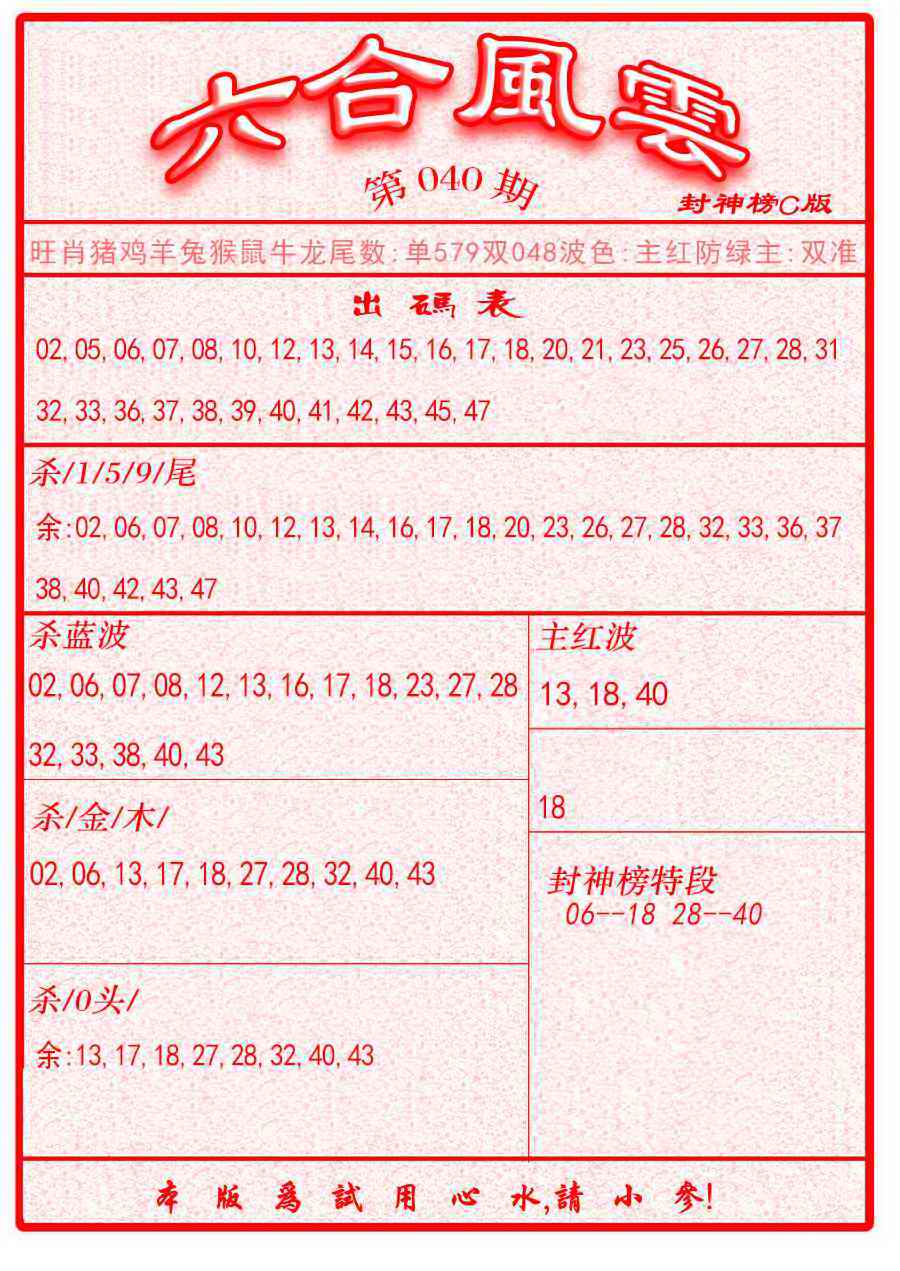 六合風雲
第040期
封神榜C版
旺肖猪鸡羊兔猴鼠牛龙尾数:单579双048波色:主红防绿主:双准
出碼表
02,05,06,07,08,10,12,13,14,15,16,17,18,20,21,23,25,26,27,28,31
32,33,36,37,38,39,40,41,42,43,45,47
杀/1/5/9/尾
余:02,06,07,08,10,12,13,14,16,17,18,20,23,26,27,28,32,33,36,37
38,40,42,43,47
杀蓝波
02,06,07,08,12,13,16,17,18,23,27,28
32,33,38,40,43
杀/金/木/
02,06,13,17,18,27,28,32,40,43
杀/0头/
余:13,17,18,27,28,32,40,43
主红波
13,18,40
18
封神榜特段
06--18 28--40
本版爲試用心水,請小參!